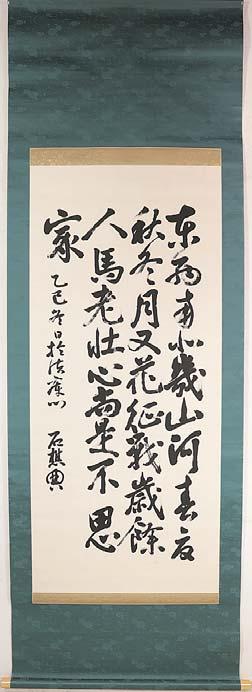 東西南北幾山河春夏
秋冬月又花征戰歲餘
人馬老壯心尚是不思
家 乙巳冬日於法庫門 石樵典